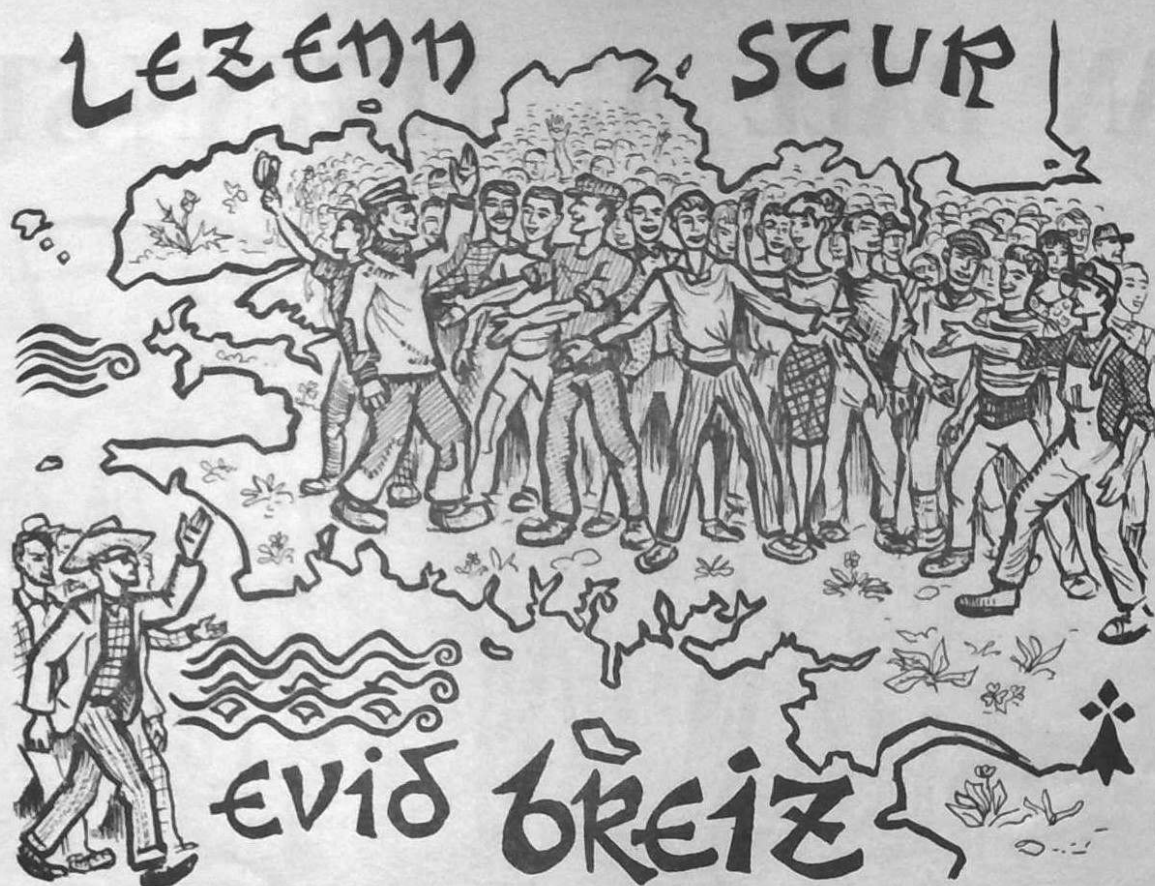 LEZENN STUR
EVID BREIZ